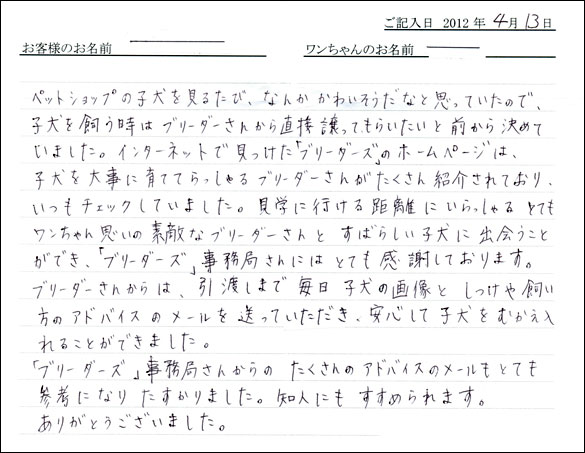 ご記入日 2012年4月13日
お客様のお名前 ワンちゃんのお名前
ペットショップの子犬を見るたび、なんか かわいそうだなと思っていたので、
子犬を飼う時はブリーダーさんから直接譲ってもらいたいと前から決めて
いました。インターネットで見つけた「ブリーダーズ」のホームページは、
子犬を大事に育ててらっしゃるブリーダーさんがたくさん紹介されており、
いつもチェックしていました。見学に行ける距離にいらっしゃる とても
ワンちゃん思いの素敵なブリーダーさんと すばらしい子犬に出会うこと
ができ、「ブリーダーズ」事務局さんにはとても感謝しております。
ブリーダーさんからは、引渡しまで毎日子犬の画像と しつけや飼い
方のアドバイスのメールを送っていただき、安心して子犬をむかえ入
れることができました。
「ブリーダーズ」事務局さんからの たくさんのアドバイスのメールもとても
参考になり たすかりました。知人にもすすめられます。
ありがとうございました。